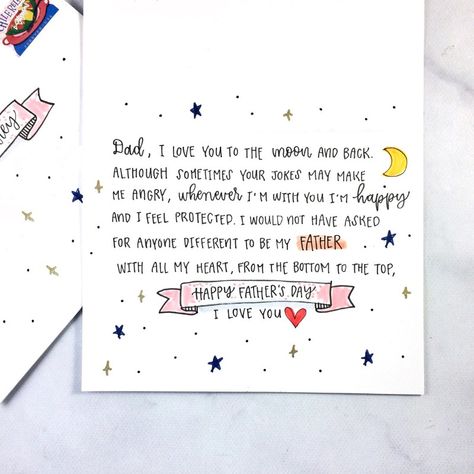 Dad, I LOVE YOU TO THE moon AND BACK.
ALTHOUGH SOMETIMES YOUR JOKES MAY MAKE
ME ANGRY, whenever I'M WITH YOU I'M happy
AND I FEEL PROTECTED. I WOULD NOT HAVE ASKED
FOR ANYONE DIFFERENT TO BE MY FATHER
WITH ALL MY HEART, FROM THE BOTTOM TO THE TOP,
HAPPY FATHER'S DAY
I LOVE YOU